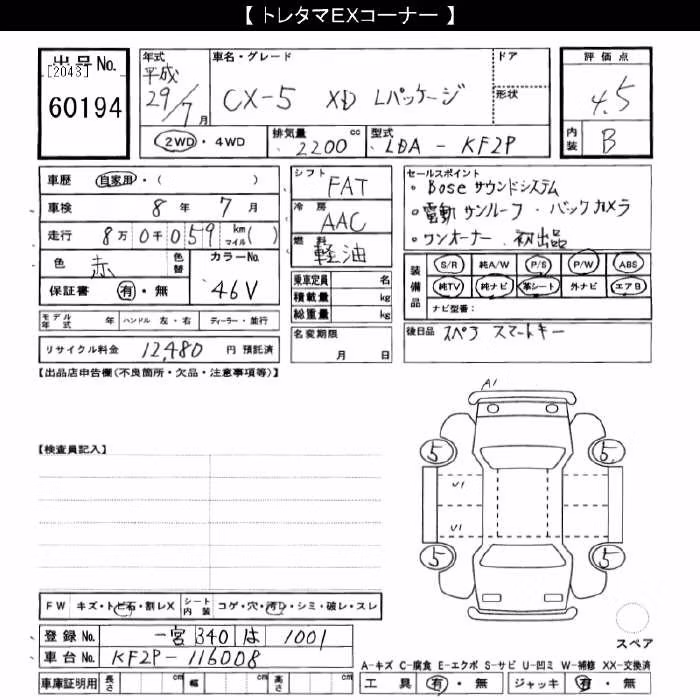 【 トレタマEXコーナー 】
出品No.
[2043]
60194
年式 平成 29/7月
車名・グレード CX-5 XD Lパッケージ
ドア
形状
評価点 4.5
内装 B
2WD・4WD
排気量 2200 cc
型式 LDA - KF2P
車歴 自家用・( )
車検 8年 7月
走行 8万0千059 km マイル( )
色 赤 色替 カラーNo. 46V
保証書 有・無
モデル年式 年 ハンドル 左・右 ディーラー・並行
リサイクル料金 12,480 円 預託済
シフト FAT
冷房 AAC
燃料 軽油
乗車定員 名
積載量 kg
総重量 kg
名変期限
月 日
セールスポイント
・Bose サウンドシステム
・電動サンルーフ・バックカメラ
・ワンオーナー 初出品
装備品 S/R 純A/W P/S P/W ABS
純TV 純ナビ 革シート 外ナビ エアB
ナビ型番:
後日品 スペラ スマートキー
【出品店申告欄(不良箇所・欠品・注意事項等)】
A1
【検査員記入】
5 5
U1
U1
5 5
FW キズ・トビ石・割レX シート内装 コゲ・穴・汚レ・シミ・破レ・スレ
登録No. 一宮 340 は 1001
車台No. KF2P-116008
スペア
A-キズ C-腐食 E-エクボ S-サビ U-凹ミ W-補修 XX-交換済
車庫証明用 長さ cm 幅 cm 高さ cm
工具 有・無 ジャッキ 有・無